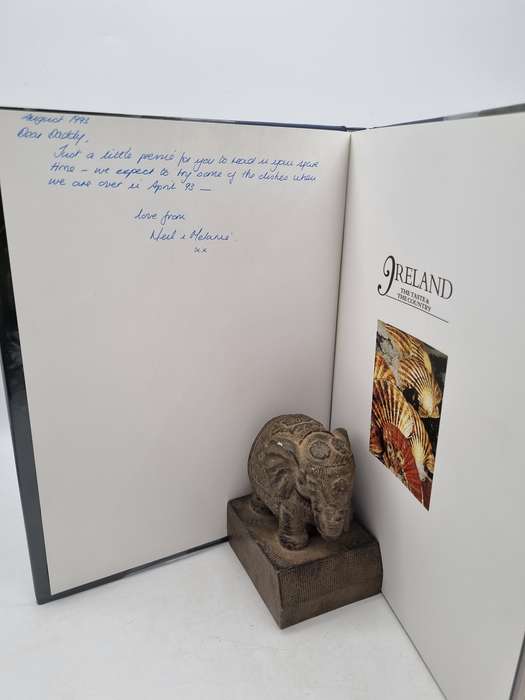 August 1992
Dear Daddy,
Just a little pressie for you to read in your spare
time - we expect to try some of the dishes when
we are over in April '93 —
love from
Neil & Melanie.
xx
IRELAND
THE TASTE &
THE COUNTRY